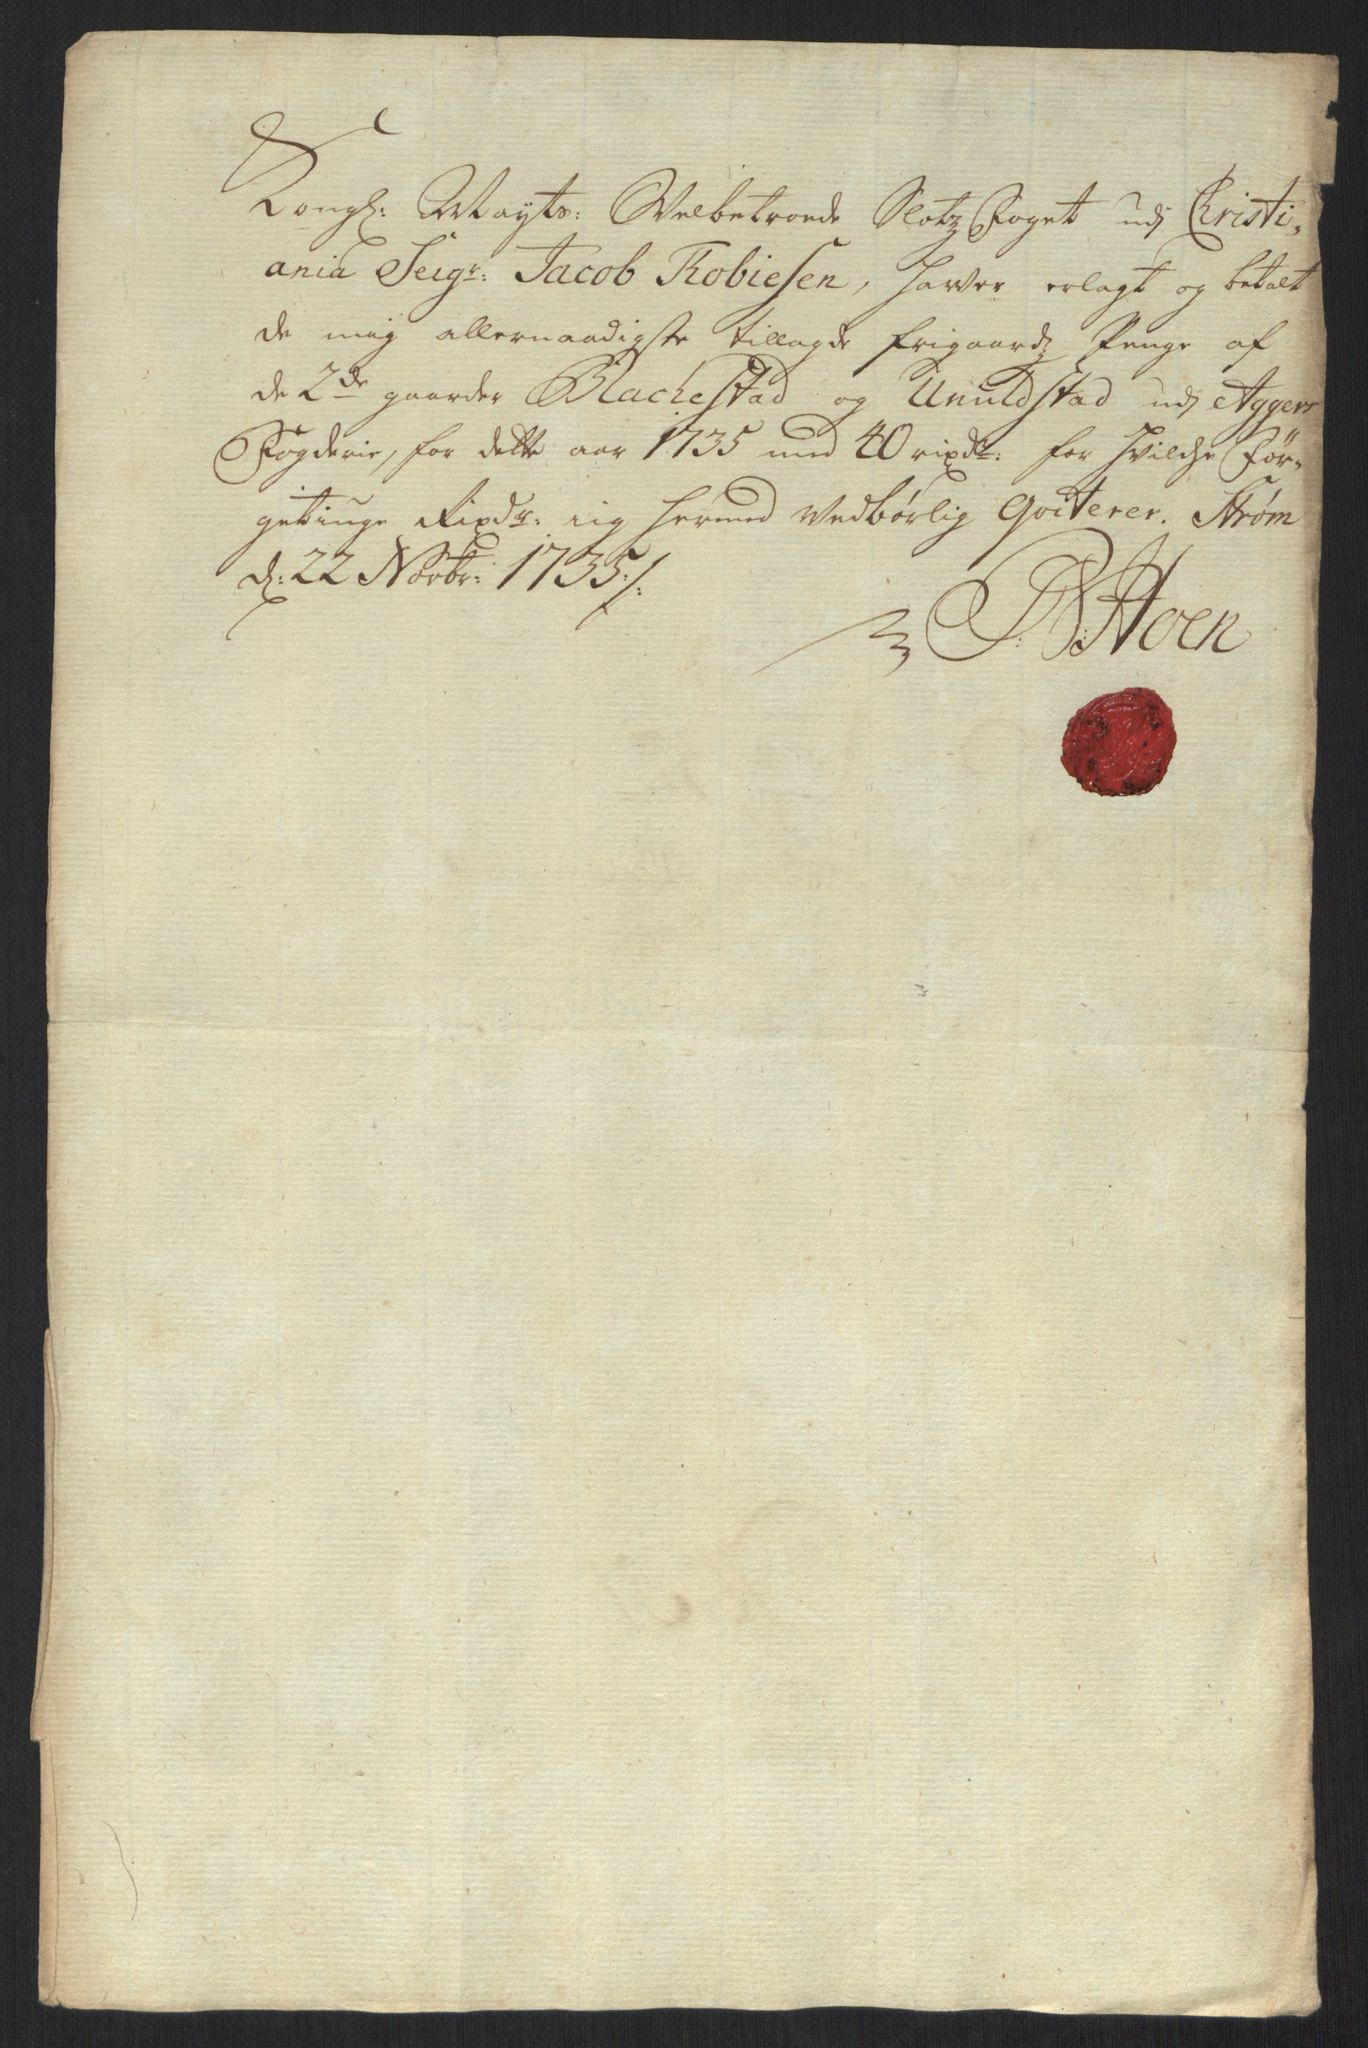 Kongl: Mayts: Welbetroede Slotz Foget udj Christi-
ania Seigr: Jacob Robiesen, haver erlagt og betalt
de mig allernaadigste tillagde frigaardz Penge af
de 2de gaarder Blachestad og Unuldstad udj Aggers
Fogderie, for dette aar 1735 med 40 rixdr: for hvilche För-
getinge Rixdr: iig hermed vedbørlig Qviterer. Strøm
d: 22 Novbr: 1735/:
Hoen